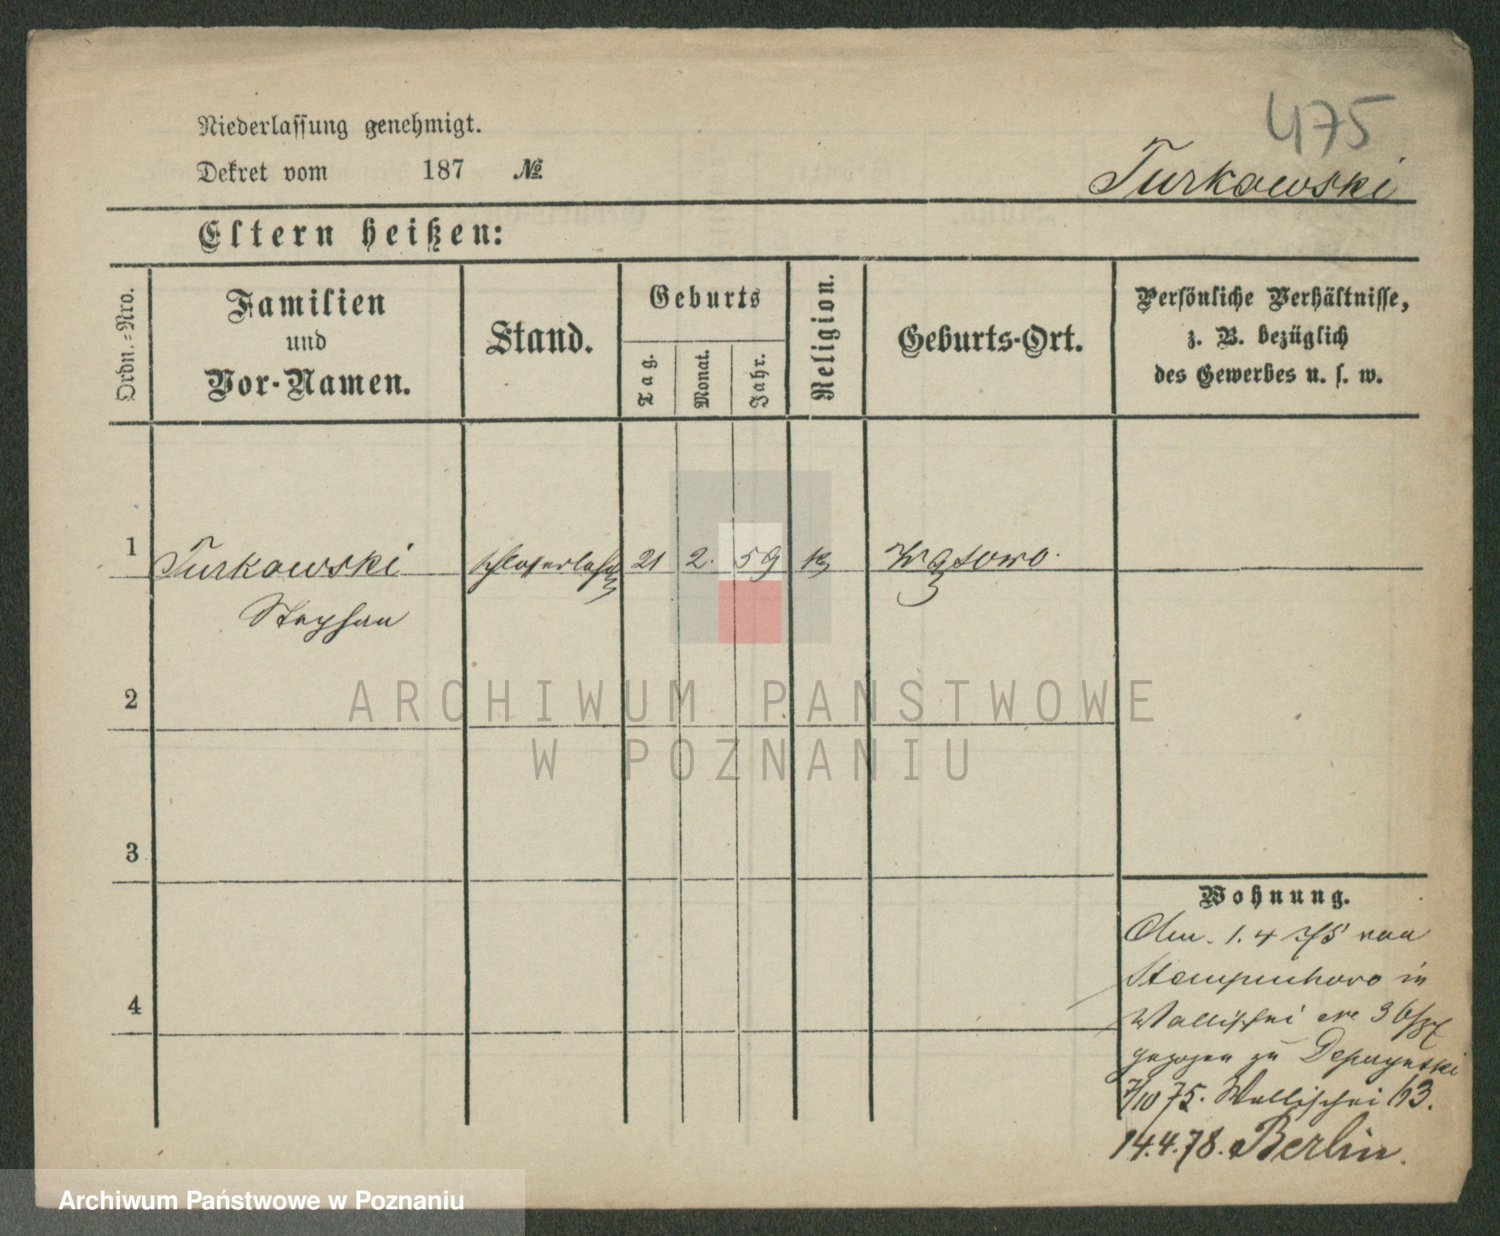 475
Niederlassung genehmigt.
Dekret vom 187 №
Turkowski
Eltern heißen:
Ordn.-Nro.
Familien
und
Vor-Namen.
Stand.
Geburts
Tag.
Monat.
Jahr.
Religion.
Geburts-Ort.
Persönliche Verhältnisse,
z. B. bezüglich
des Gewerbes u. s. w.
1 Turkowski 21 2. 59 k
Stephan
2
ARCHIWUM PAŃSTWOWE
W POZNANIU
3
Wohnung.
1. 4 75 von
in
4
Wallischei 3
gezogen zu
7/10 75. Wallischei 63.
14.4.78. Berlin.
Archiwum Państwowe w Poznaniu